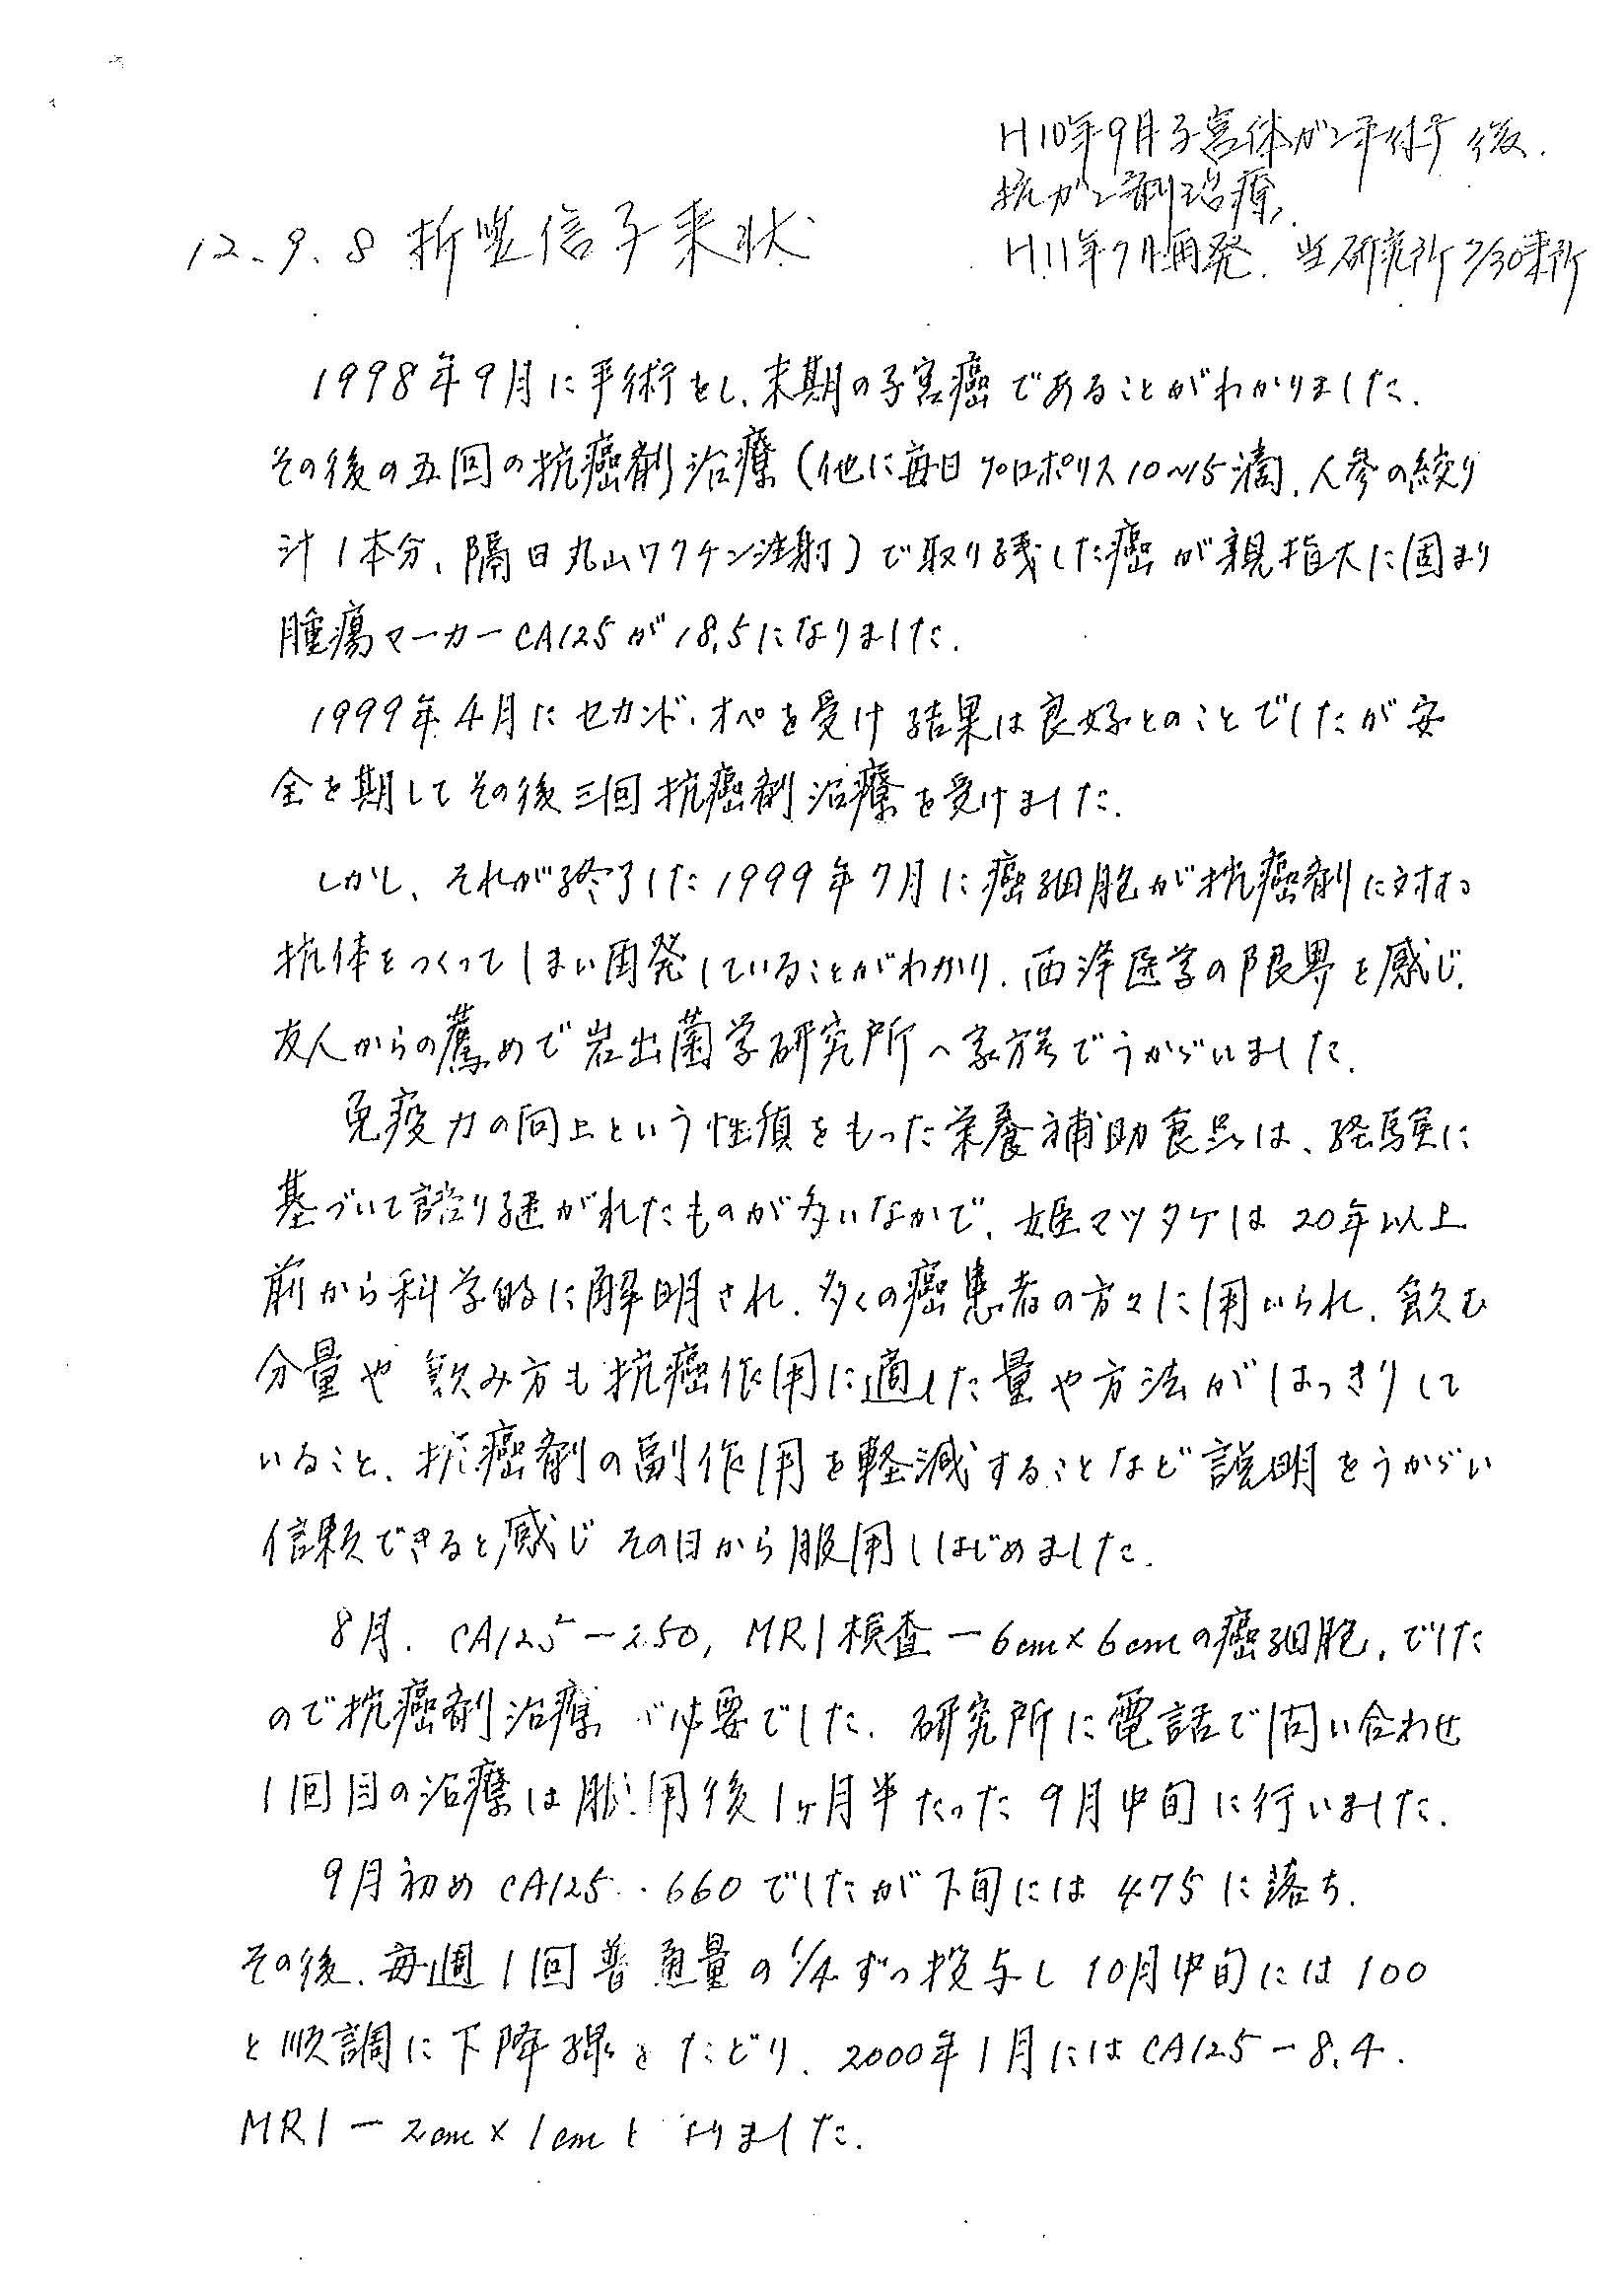 H10年9月子宮体ガン手術後.
抗ガン剤治療.
H11年7月再発. 当研究所7/30来所
12.9.8 折 信子来状
1998年9月に手術をし、末期の子宮癌であることがわかりました.
その後の五回の抗癌剤治療(他に毎日プロポリス10〜15滴、人参の絞り
汁1本分、隔日丸山ワクチン注射)で取り残した癌が親指大に固まり
腫瘍マーカーCA125が18.5になりました.
1999年4月にセカンド・オペを受け結果は良好とのことでしたが安
全を期してその後三回抗癌剤治療を受けました.
しかし、それが終了した1999年7月に癌細胞が抗癌剤に対する
抗体をつくってしまい再発していることがわかり、西洋医学の限界を感じ、
友人からの薦めで岩出菌学研究所へ家族でうかがいました.
免疫力の向上という性質をもった栄養補助食品は、経験に
基づいて語り継がれたものが多いなかで、姫マツタケは20年以上
前から科学的に解明され、多くの癌患者の方々に用いられ、飲む
分量や飲み方も抗癌作用に適した量や方法がはっきりして
いること、抗癌剤の副作用を軽減することなど説明をうかがい
信頼できると感じその日から服用しはじめました.
8月. CA125ー250, MRI検査ー6cm×6cmの癌細胞、でした
ので抗癌剤治療が必要でした. 研究所に電話で問い合わせ
1回目の治療は服用後1ヶ月半たった9月中旬に行いました.
9月初めCA125・・660でしたが下旬には475に落ち、
その後、毎週1回普通量の1/4ずつ投与し10月中旬には100
と順調に下降線をたどり、2000年1月にはCA125ー8.4.
MRIー2cm×1cmとなりました.